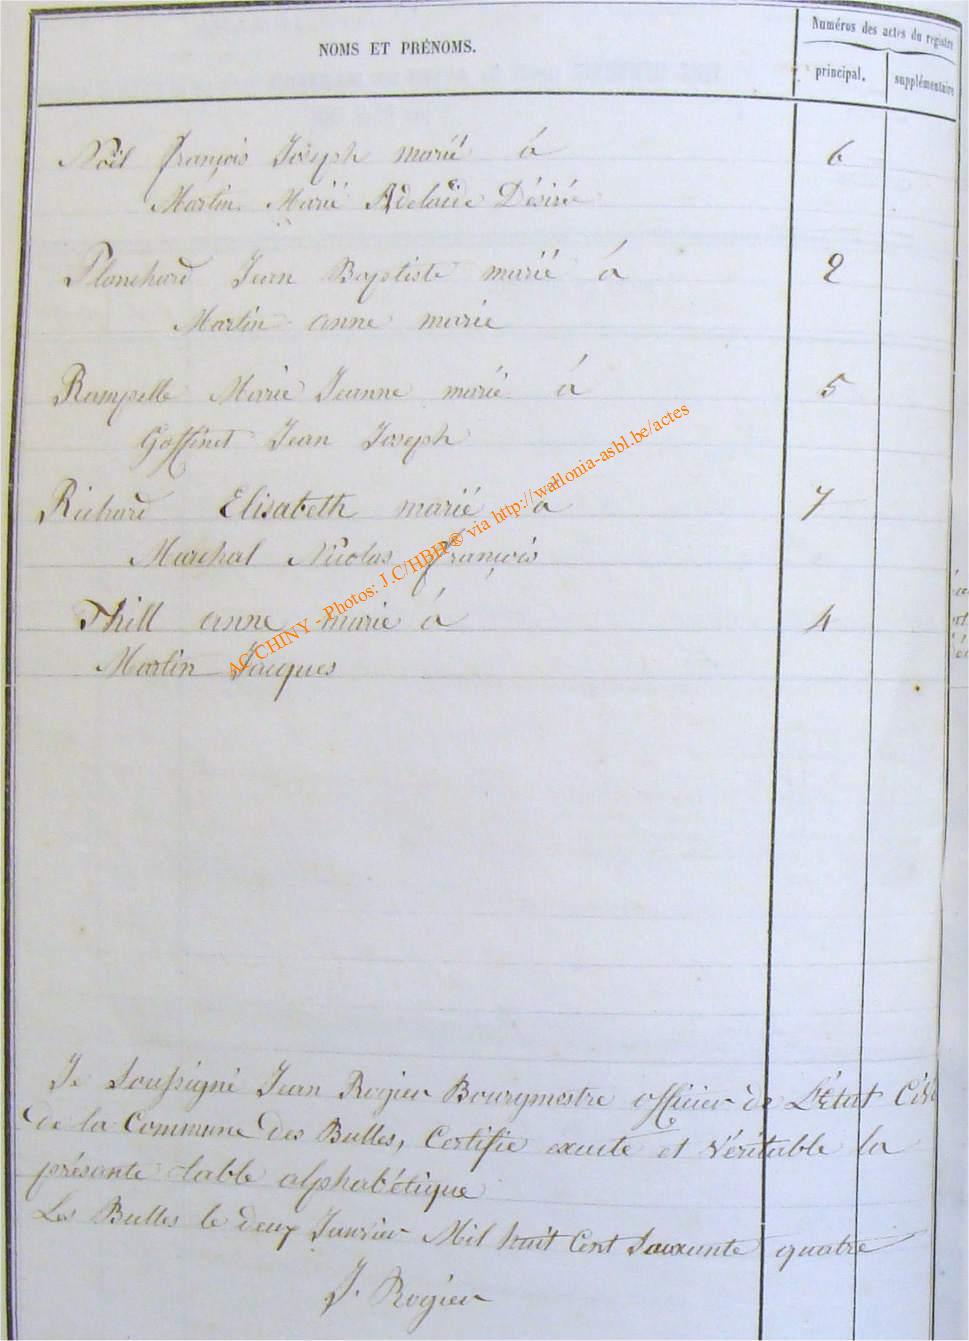 NOMS ET PRÉNOMS.
Numéros des actes du registre
principal.
supplémentaire
Noël françois Joseph marié á 6
Martin Marie Adelaïde Désiré
Planchard Jean Baptiste marié á 2
Martin anne marie
Rampelle Marie Jeanne marié á 5
Goffinet Jean Joseph
Richard Elisabeth marié á 7
Marchal Nicolas françois
Thill anne marie á 4
Martin Jacques
AC CHINY - Photos: J.C/HBH® via http://wallonia-asbl.be/actes
Je Soussigné Jean Rogier Bourgmestre officier de L'état Civil
de la Commune des Bulles, Certifie exacte et véritable la
présante table alphabétique
Les Bulles le deux Janvier Mil huit Cent Soixante quatre
J. Rogier